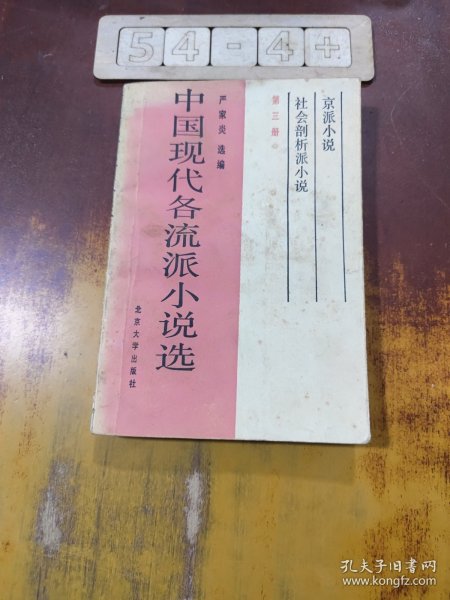 54-4+
京派小说
社会剖析派小说
第三册
严家炎 选编
中国现代各流派小说选
北京大学出版社
孔夫子旧书网
www.kongfz.com